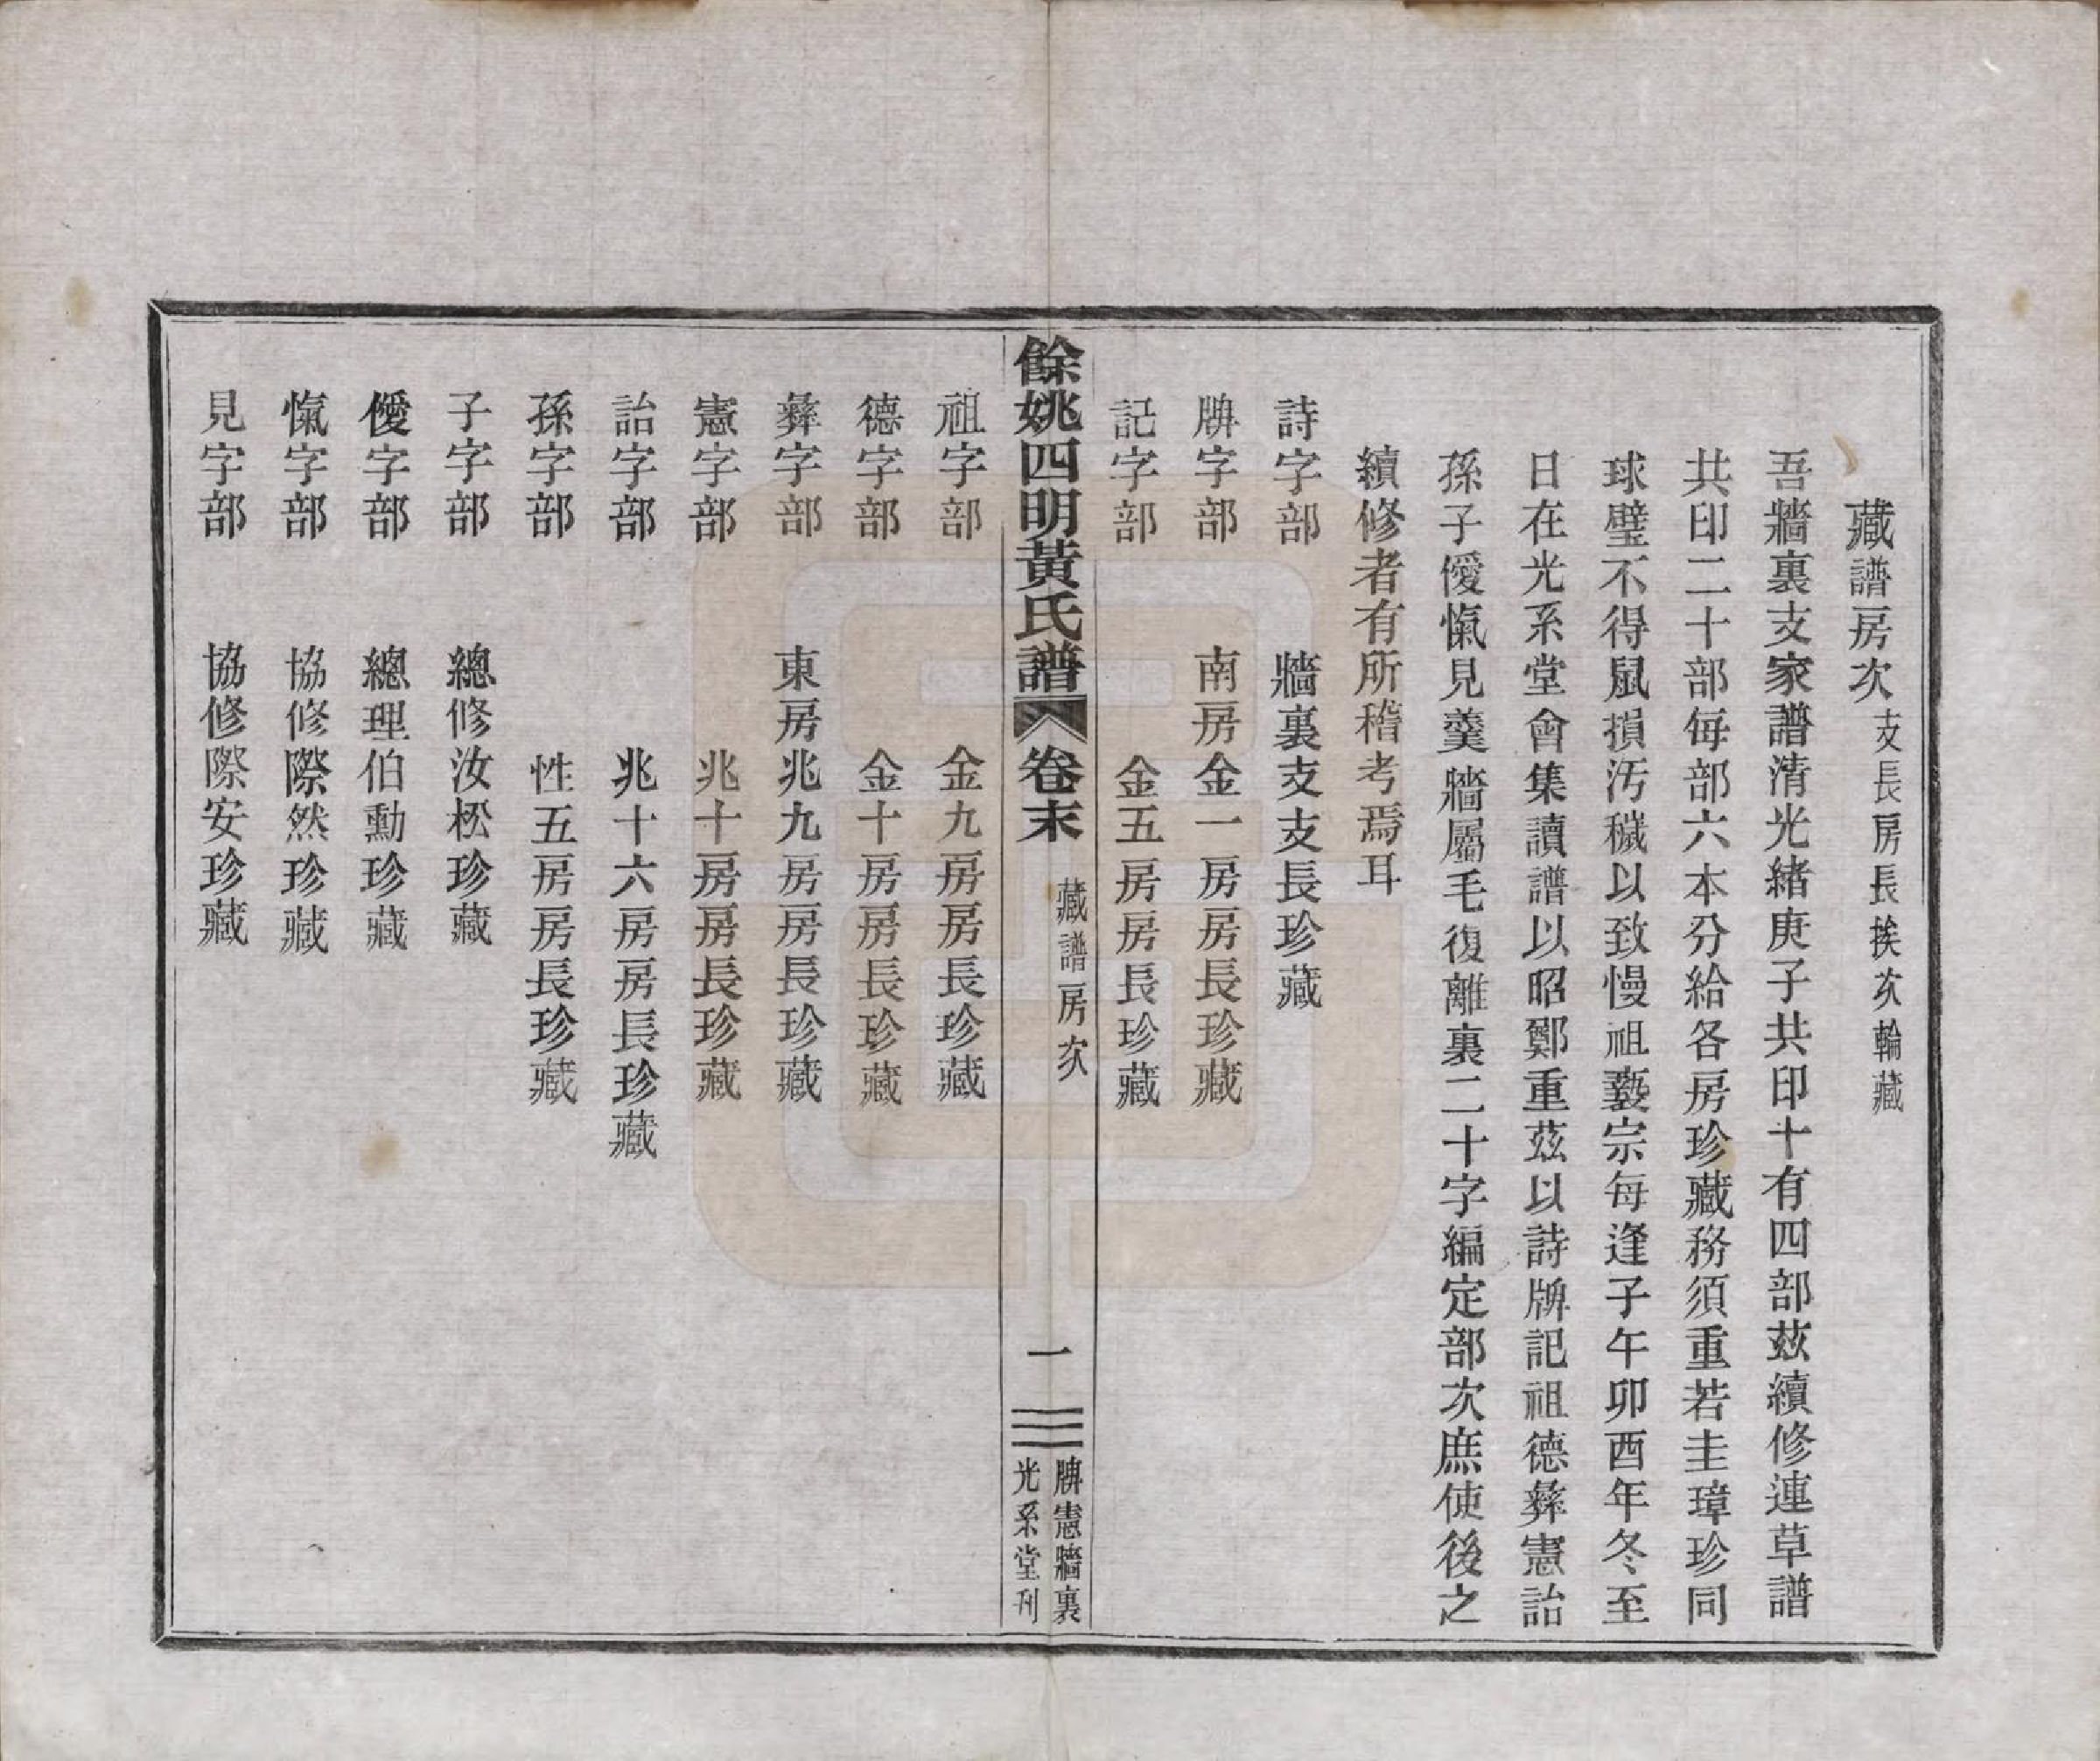 藏譜房次支長房長挨次輪藏
吾牆裏支家譜清光緒庚子共印十有四部茲續修連草譜
共印二十部每部六本分給各房珍藏務須重若圭璋珍同
球璧不得鼠損汚穢以致慢祖褻宗每逢子午卯酉年冬至
日在光系堂會集讀譜以昭鄭重茲以詩牌記祖德彝憲詒
孫子僾愾見羹牆屬毛復離裏二十字編定部次庶使後之
續修者有所稽考焉耳
詩字部　牆裏支支長珍藏
牌字部　南房金一房房長珍藏
記字部　金五房房長珍藏
餘姚四明黃氏譜　卷末　藏譜房次　一　牌憲牆裏
光系堂刊
祖字部　金九房房長珍藏
德字部　金十房房長珍藏
彝字部　東房兆九房房長珍藏
憲字部　兆十房房長珍藏
詒字部　兆十六房房長珍藏
孫字部　性五房房長珍藏
子字部　總修汝松珍藏
僾字部　總理伯勳珍藏
愾字部　協修際然珍藏
見字部　協修際安珍藏